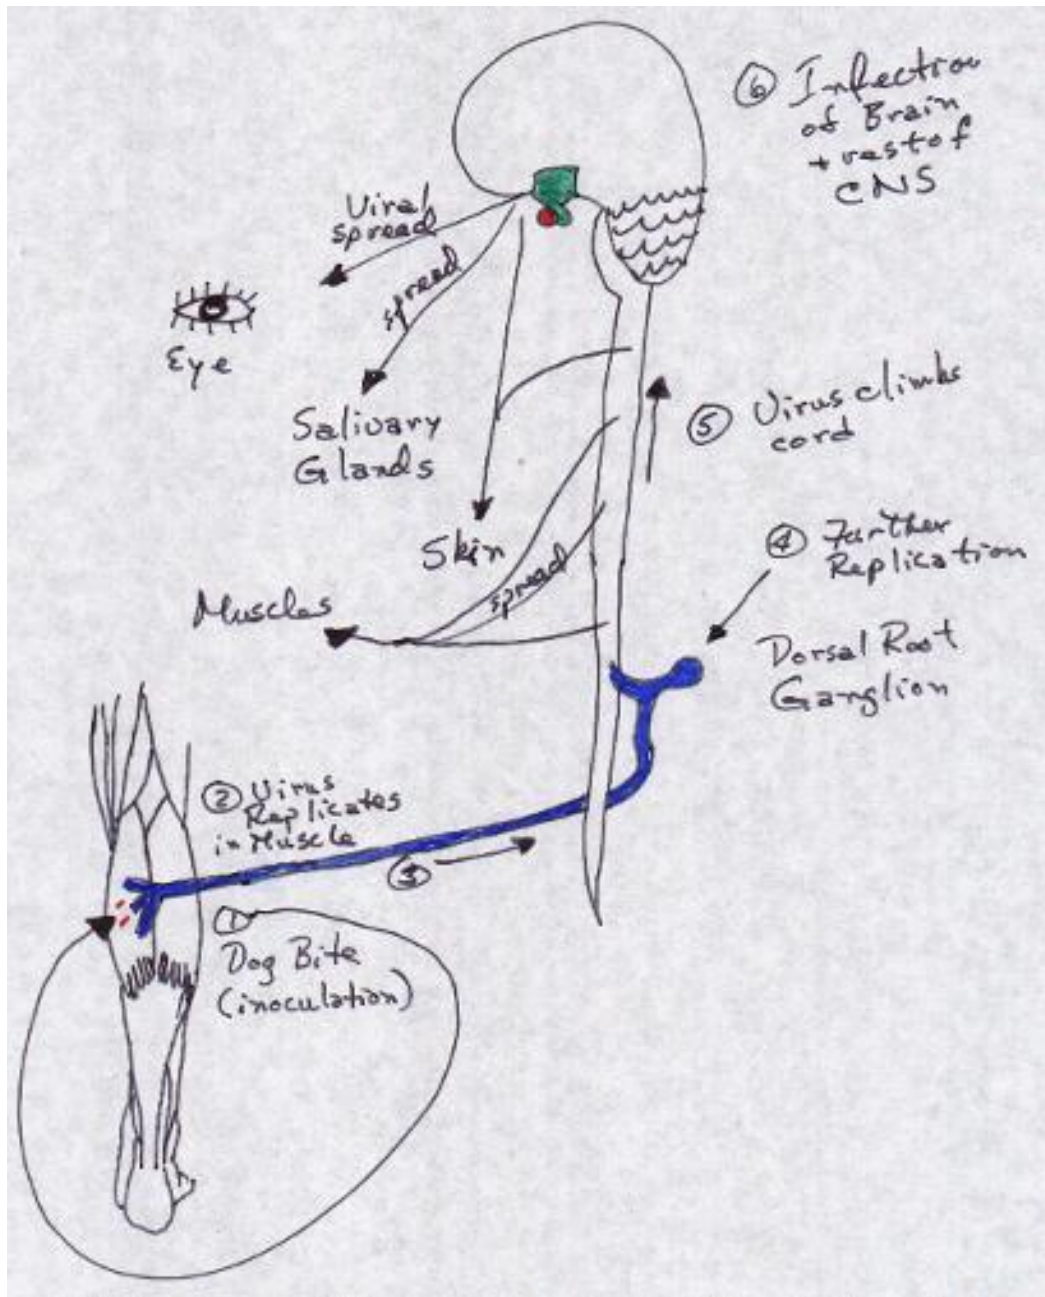 ⑥ Infection
of Brain
+ rest of
CNS
Viral
spread
spread
Eye
Salivary
Glands
⑤ Virus climbs
cord
Skin
④ Further
Replication
spread
Muscles
Dorsal Root
Ganglion
② Virus
Replicates
in Muscle
③
①
Dog Bite
(inoculation)